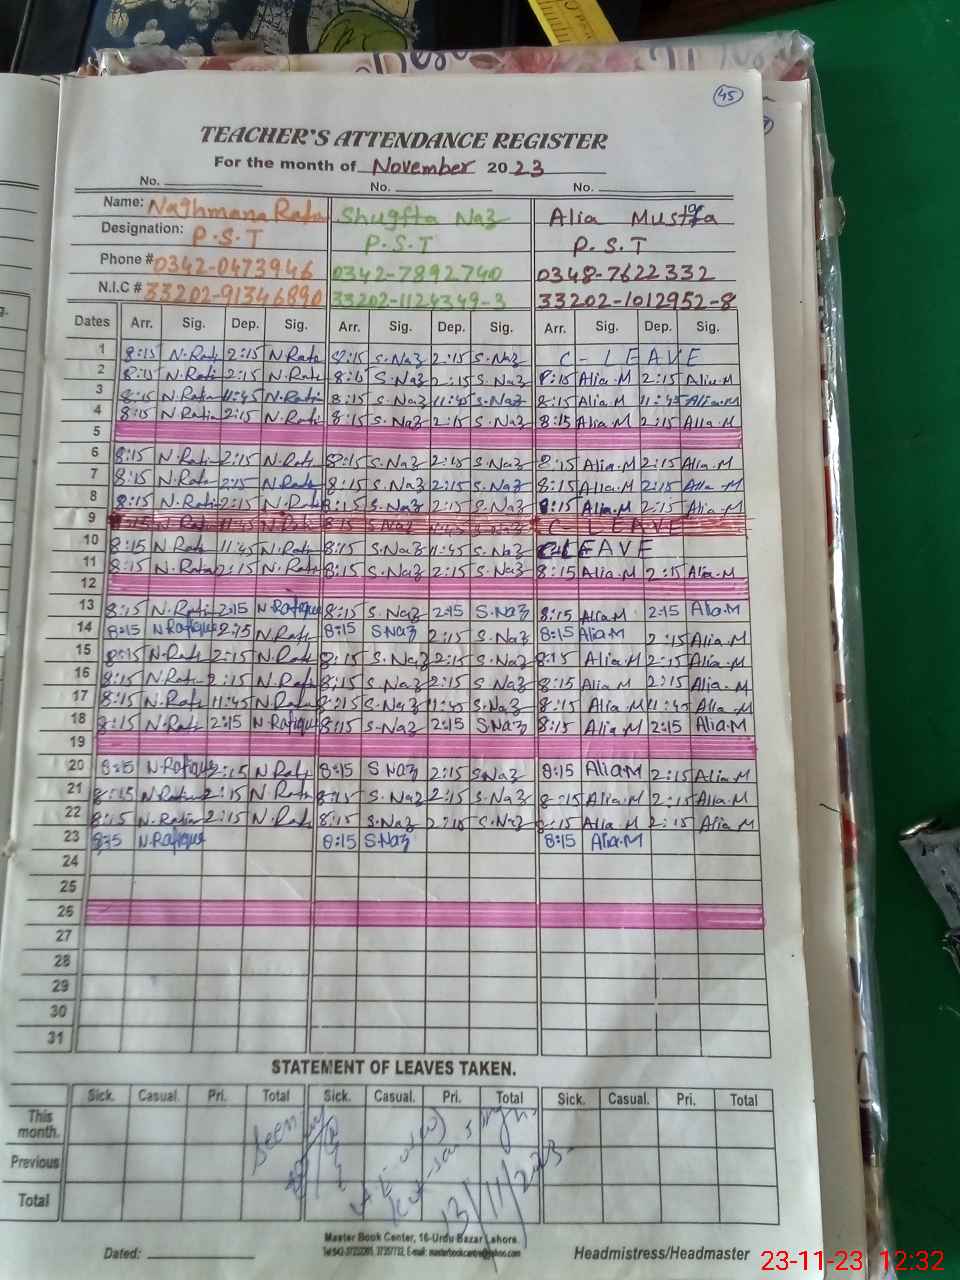 45
TEACHER'S ATTENDANCE REGISTER
For the month of November 2023
No. No. No.
Name: Naghmana Rafa Shugfta Naz Alia Mustfa
Designation: P.S.T P.S.T P.S.T
Phone # 0342-0473946 0342-7892740 0348-7622332
N.I.C # 33202-91346890 33202-1124349-3 33202-1012952-8
Dates Arr. Sig. Dep. Sig. Arr. Sig. Dep. Sig. Arr. Sig. Dep. Sig.
1 8:15 N.Rafi 2:15 N.Rafi 8:15 S.Naz 2:15 S.Naz C-LEAVE
2 8:15 N.Rafi 2:15 N.Rafi 8:15 S.Naz 2:15 S.Naz 8:15 Alia.M 2:15 Alia.M
3 8:15 N.Rafiq 11:45 N.Rafi 8:15 S.Naz 11:45 S.Naz 8:15 Alia.M 11:45 Alia.M
4 8:15 N Rafiq 2:15 N.Rafi 8:15 S.Naz 2:15 S.Naz 8:15 Alia.M 2:15 Alia.M
5
6 8:15 N.Rafi 2:15 N.Rafi 8:15 S.Naz 2:15 S.Naz 8:15 Alia.M 2:15 Alia.M
7 8:15 N.Rafi 2:15 N.Rafi 8:15 S.Naz 2:15 S.Naz 8:15 Alia.M 2:15 Alia-M
8 8:15 N.Rafi 2:15 N.Rafi 8:15 S.Naz 2:15 S.Naz 8:15 Alia.M 2:15 Alia.M
9 8:15 N Rafi 11:45 N Rafi 8:15 S.Naz S.Naz C-LEAVE
10 8:15 N Rafi 11:45 N.Rafi 8:15 S.Naz 11:45 S.Naz C-LEAVE
11 8:15 N.Rafiq 2:15 N.Rafi 8:15 S.Naz 2:15 S.Naz 8:15 Alia.M 2:15 Alia.M
12
13 8:15 N.Rafi 2:15 N Rafique 8:15 S.Naz 2:15 S.Naz 8:15 Alia.M 2:15 Alia.M
14 8:15 N Rafique 2:15 N.Rafi 8:15 S Naz 2:15 S.Naz 8:15 Alia M 2:15 Alia.M
15 8:15 N.Rafi 2:15 N.Rafi 8:15 S.Naz 2:15 S.Naz 8:15 Alia.M 2:15 Alia.M
16 8:15 N.Rafi 2:15 N.Rafi 8:15 S.Naz 2:15 S Naz 8:15 Alia M 2:15 Alia.M
17 8:15 N.Rafi 11:45 N.Rafi 8:15 S.Naz 11:45 S.Naz 8:15 Alia.M 11:45 Alia M
18 8:15 N.Rafi 2:15 N Rafique 8:15 S.Naz 2:15 S Naz 8:15 Alia.M 2:15 Alia.M
19
20 8:15 N Rafique 2:15 N Rafi 8:15 S Naz 2:15 S.Naz 8:15 Alia.M 2:15 Alia.M
21 8:15 N.Rafiq 2:15 N Rafi 8:15 S.Naz 2:15 S.Naz 8:15 Alia.M 2:15 Alia.M
22 8:15 N.Rafiq 2:15 N.Rafi 8:15 S.Naz 2:15 S.Naz 8:15 Alia.M 2:15 Alia M
23 8:15 N.Rafique 8:15 S.Naz 8:15 Alia.M
24
25
26
27
28
29
30
31
STATEMENT OF LEAVES TAKEN.
Sick. Casual. Pri. Total Sick. Casual. Pri. Total Sick. Casual. Pri. Total
This month.
Previous
Total
Seen
13/11/2023
Master Book Center, 16-Urdu Bazar Lahore.
Dated: Headmistress/Headmaster
23-11-23 12:32